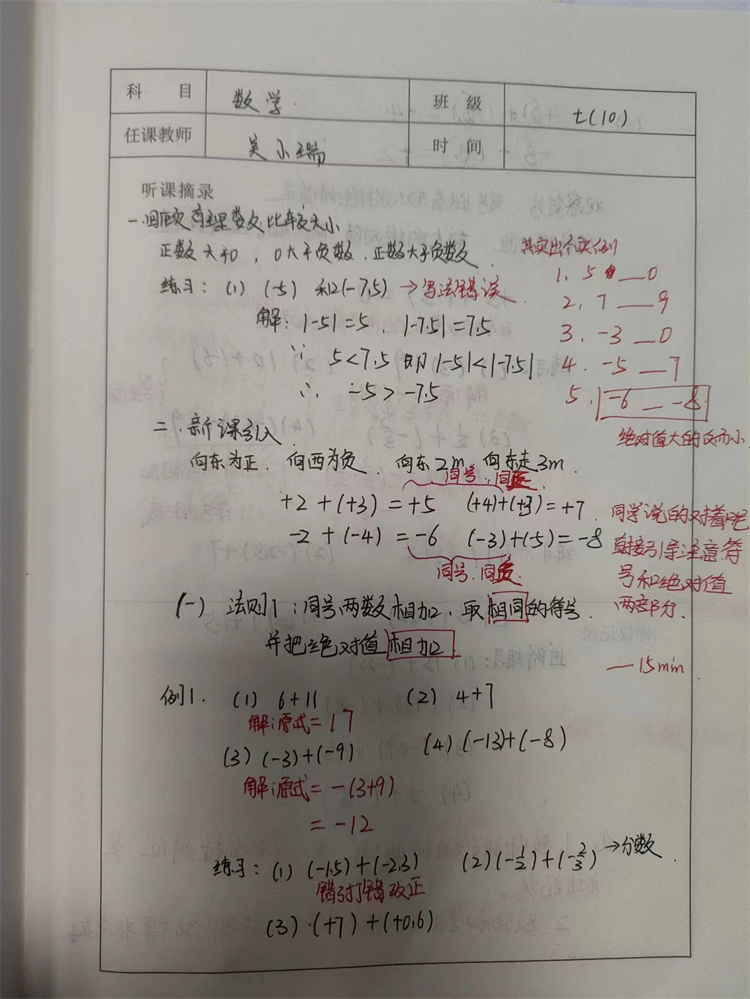 科 目 数学 班 级 七(10)
任课教师 吴小瑞 时 间
听课摘录
一.回顾有理数比较大小:
正数大于0，0大于负数．正数大于负数
其实出个实例
练习：(1) (-5) 和(-7.5) →写法错误
1. 5 __ 0
解：|-5|=5．|-7.5|=7.5
2. 7 __ 9
3. -3 __ 0
∵ 5<7.5 即|-5|<|-7.5|
4. -5 __ 7
∴ -5>-7.5
5. -6 __ -8
绝对值大的反而小
二．新课引入
向东为正．向西为负．向东2m．向东走3m．
同号，同正
+2+(+3)=+5 (+4)+(+3)=+7
-2+(-4)=-6 (-3)+(-5)=-8
同号，同负
同学说的对着呢
直接引导注意符
号和绝对值
两部分．
(一) 法则1：同号两数相加，取相同的符号．
并把绝对值相加
—15min
例1. (1) 6+11 (2) 4+7
解：原式=17
(3) (-3)+(-9) (4) (-13)+(-8)
解：原式=-(3+9)
=-12
练习：(1) (-1.5)+(-2.3) (2) (-1/2)+(-2/3) →分数
错 打错改正
(3)．(+7)+(+0.6)